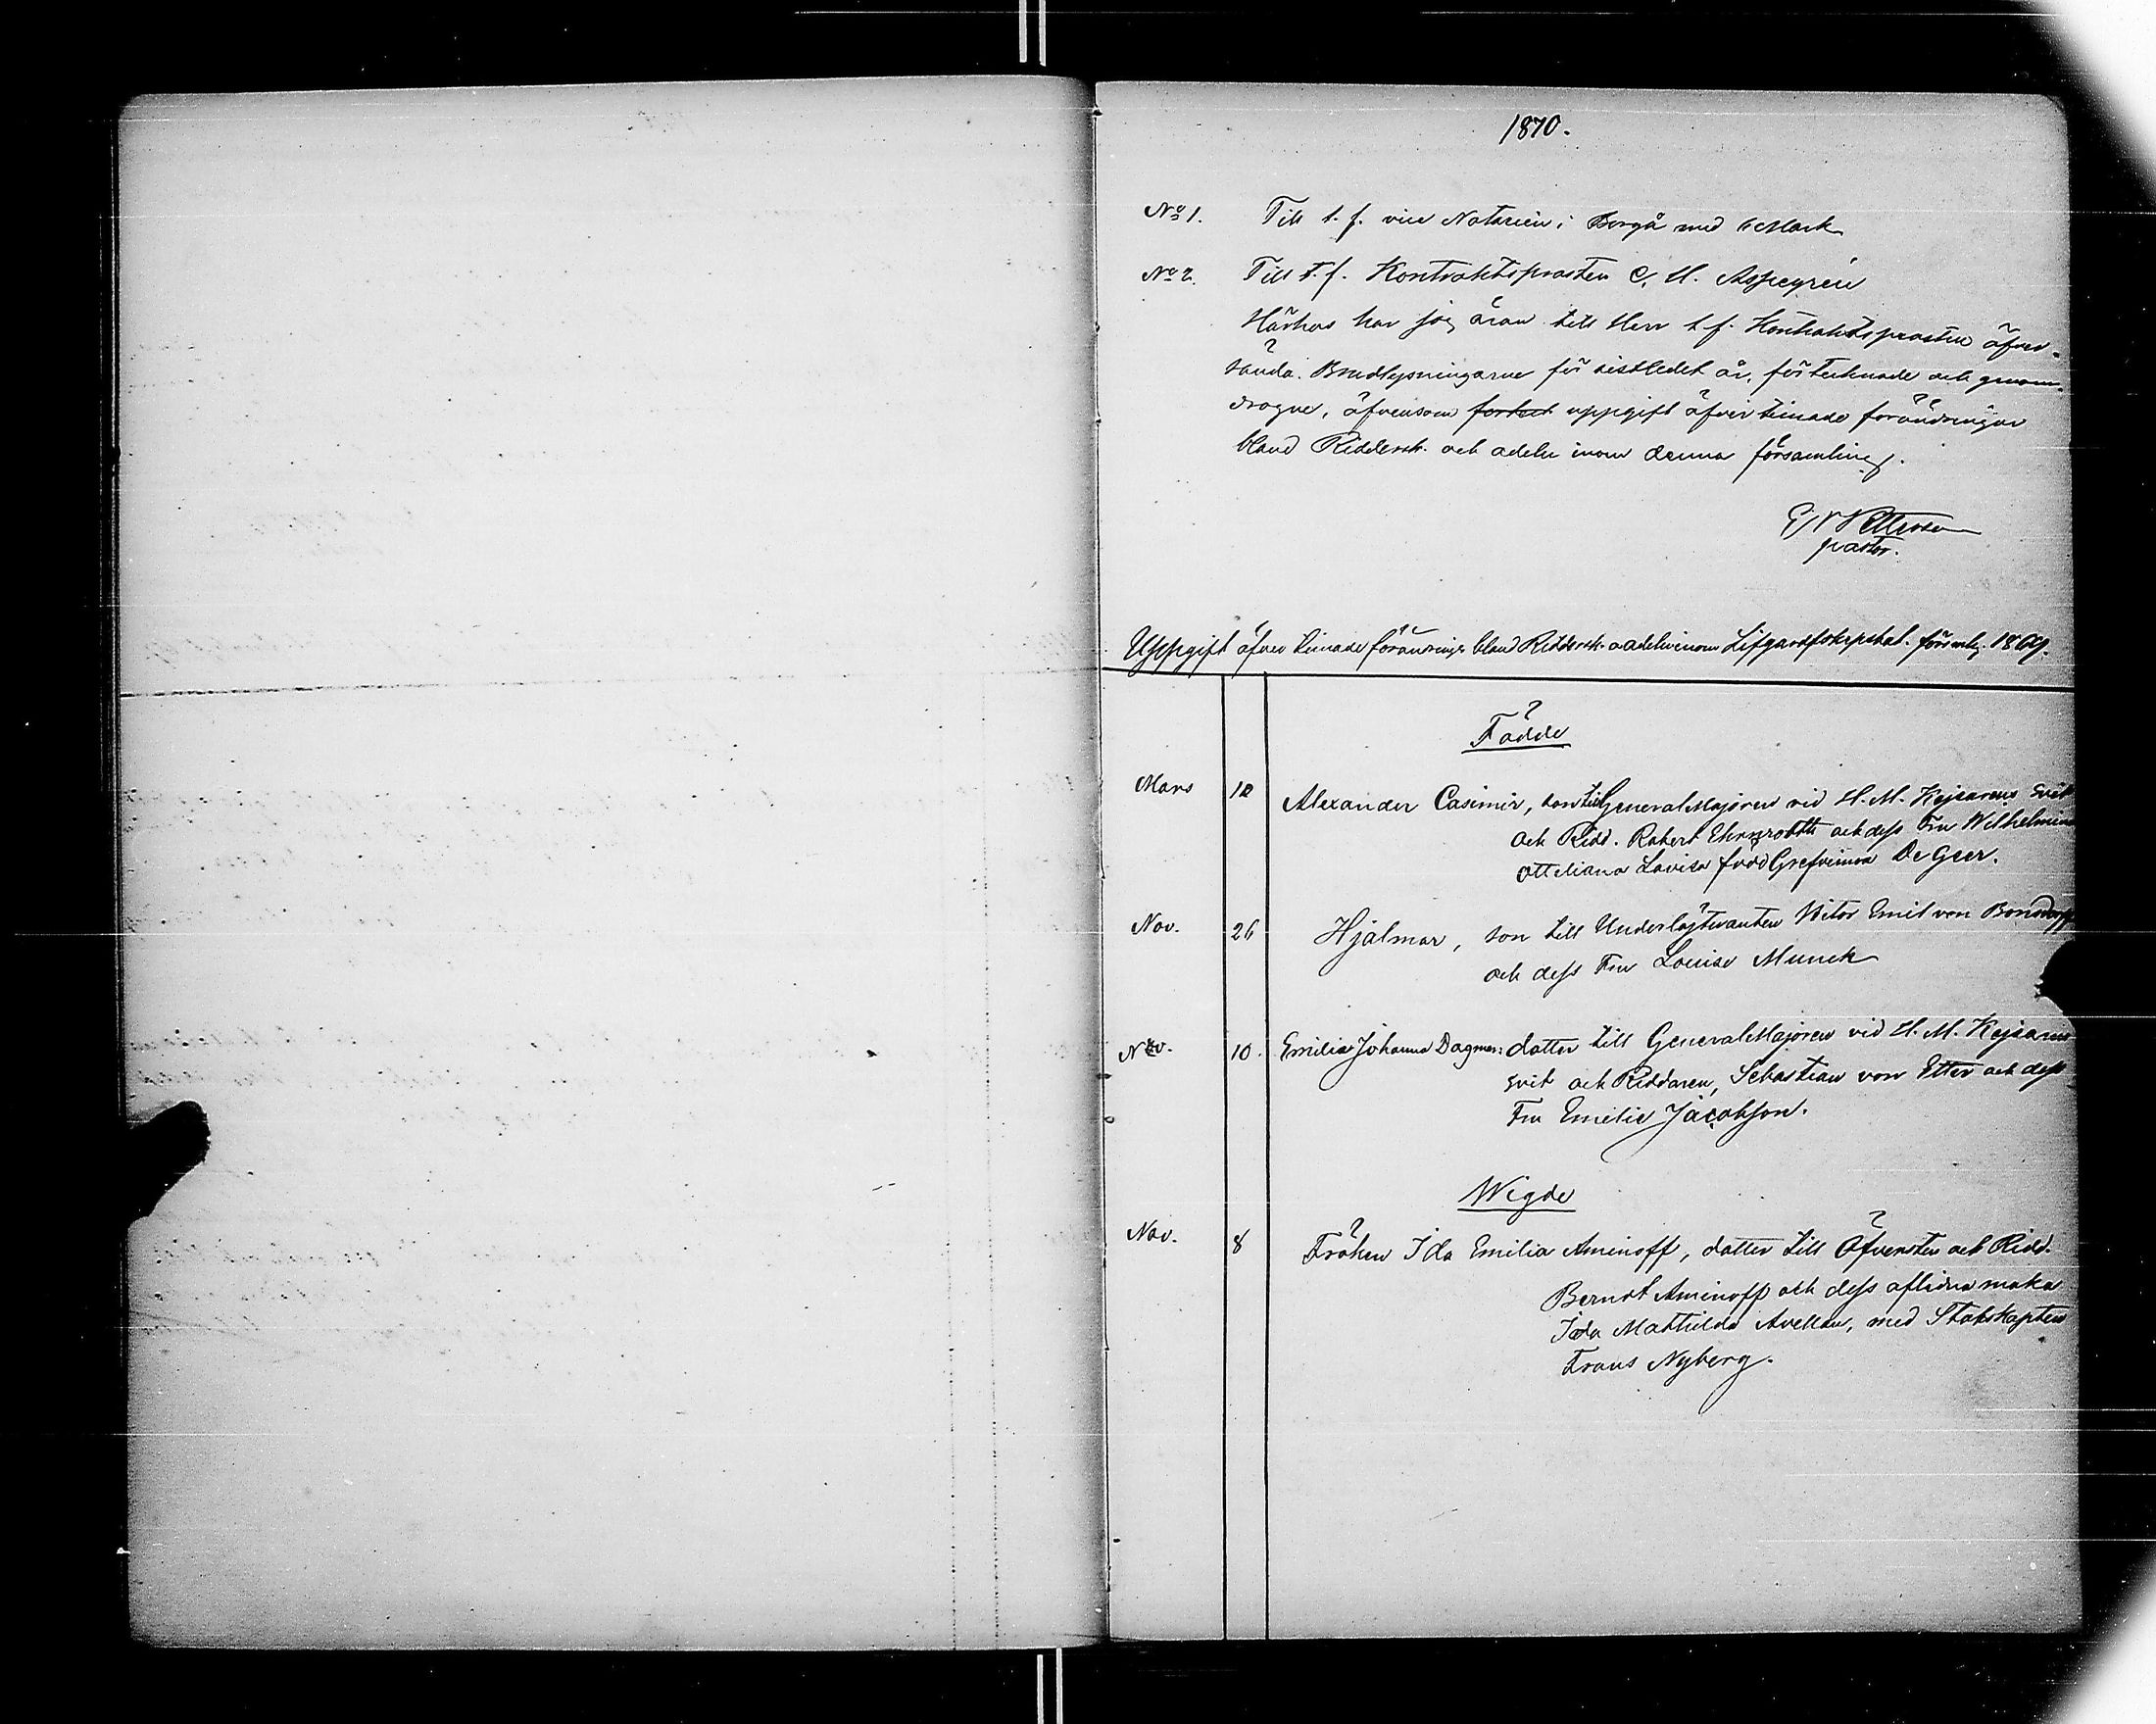 1870.
No 1. Till t. f. vice Notarien i Borgå med 6 Mark
No 2. Till t. f. Kontraktsprosten C. H. Aspegrén
Härhos har jag äran till Herr t f. Kontraktsprosten öfver-
sända Bredlysningarne för sistledet år, förtecknade och genom-
dragne, äfvensom uppgift öfver timade förändringar
bland Riddersk. och adeln inom denna församling.
Pettersson
pastor.
Uppgift öfver timade förändring. bland Riddersk. o adeln inom Lifgardsskarpsk. församlg. 1869.
Födde
Mars 12 Alexander Casimir, son till General Majoren vid H. M. Kejsarens Svit
och Ridd. Robert Ehrnrooth och dess Fru Wilhelmina
Otteliana Lovisa född Grefvinna De Geer.
Nov. 26 Hjalmar, son till Underlöjtnanten Victor Emil von Bonsdorff
och dess Fru Louise Munck
Nov. 10. Emilie Johanna Dagmar: dotter till General Majoren vid H. M. Kejsarens
Svit och Riddaren, Sebastian von Etter och dess
Fru Emilie Jacobson.
Wigde
Nov. 8 Fröken Ida Emilia Aminoff, dotter till Öfversten och Ridd.
Berndt Aminoff och dess aflidna maka
Ida Mathilda Avellan, med Stabskapten
Frans Nyberg.